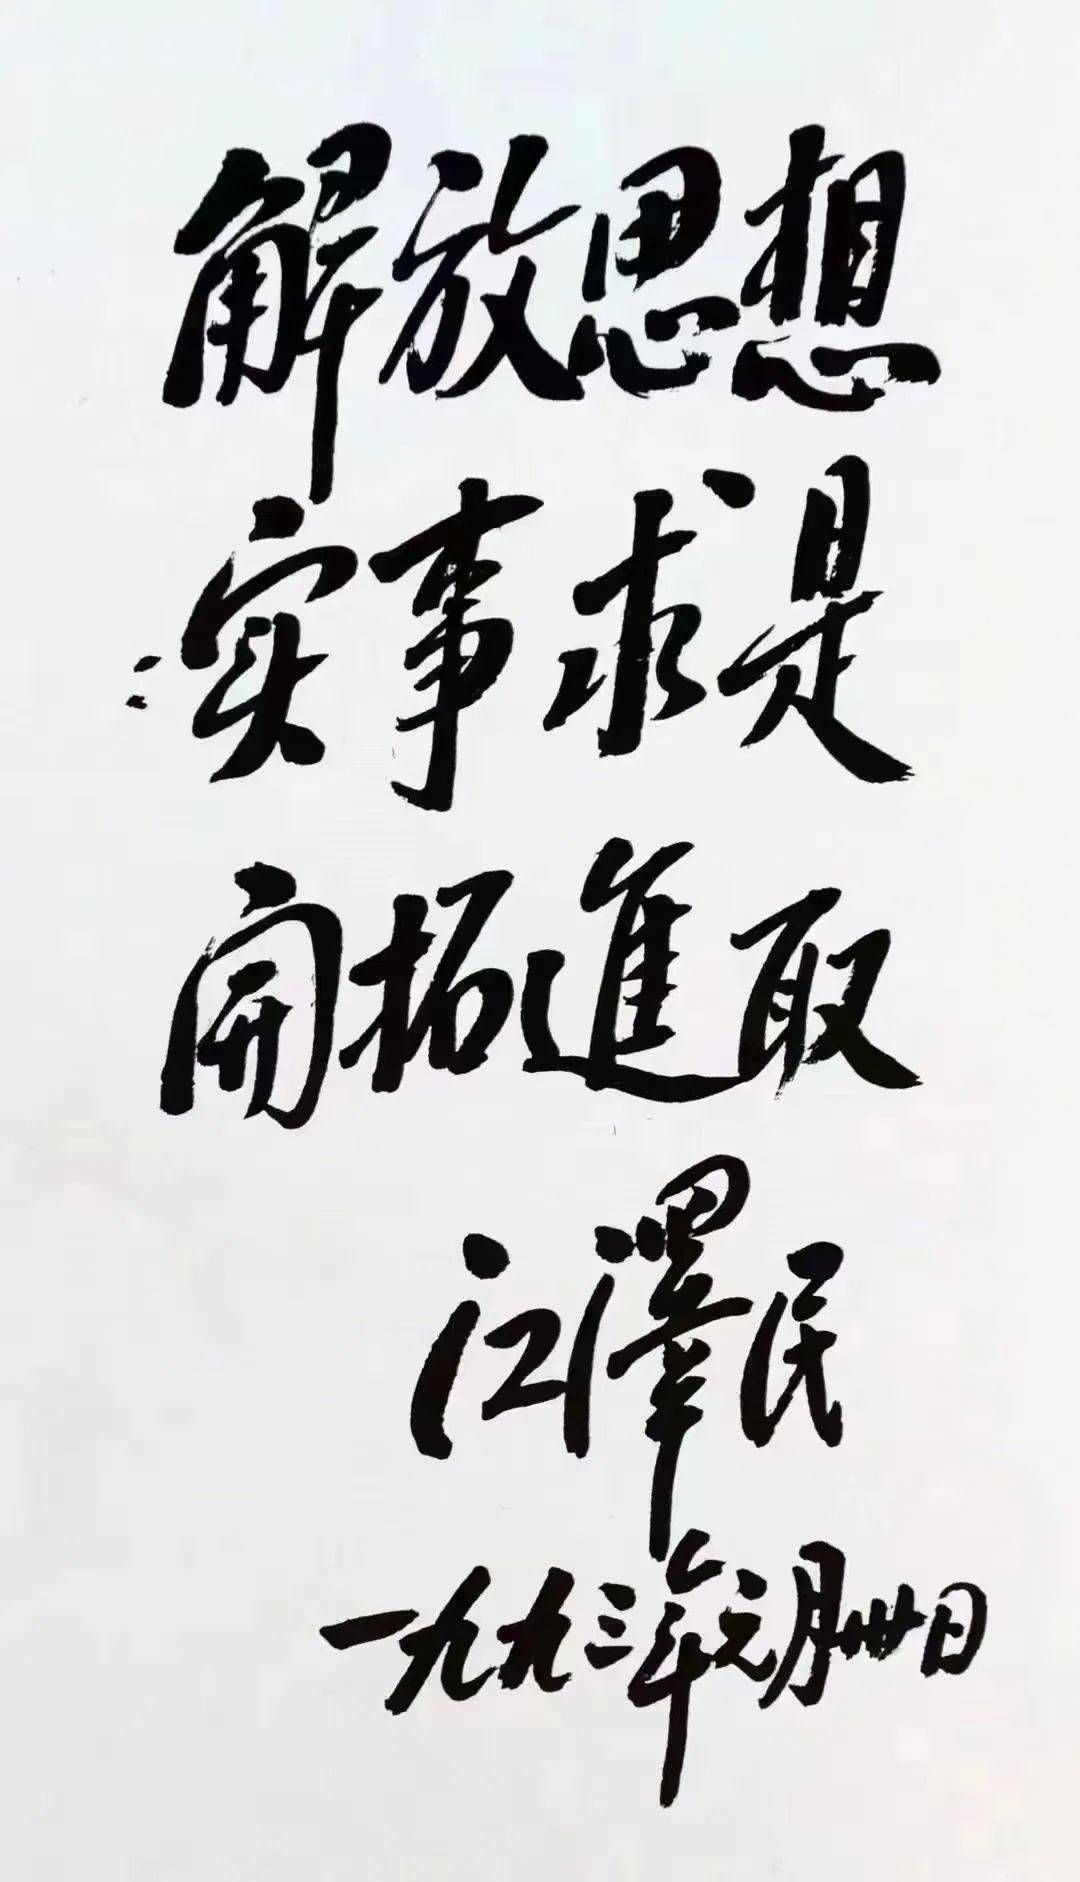 解放思想
实事求是
開拓進取
江澤民
一九九三年元月卅日